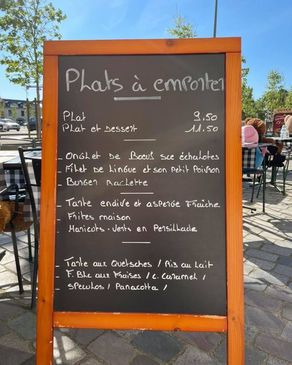 Plats à emporter
Plat 9,50
Plat et Dessert 11.50
- Onglet de Boeuf sce échalotes
- Filet de Lingue et son petit Poivron
- Burger Raclette
- Tarte endive et asperge Fraîche
- Frites maison
- Haricots-verts en Persillade
- Tarte aux Quetsches / Riz au Lait
- F. Blc aux Fraises / C. Caramel /
- Speculos / Panacotta /